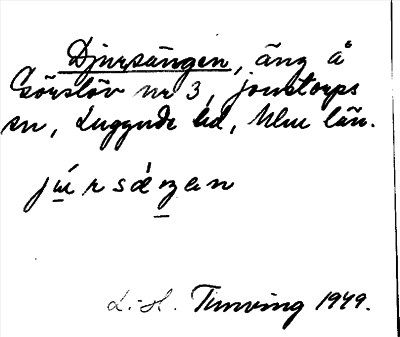 Djursängen, äng å
Görslöv nr 3, Jonstorps
sn, Luggude hd, Mlm län.
júrsáŋan
L:H. Tunving 1949.